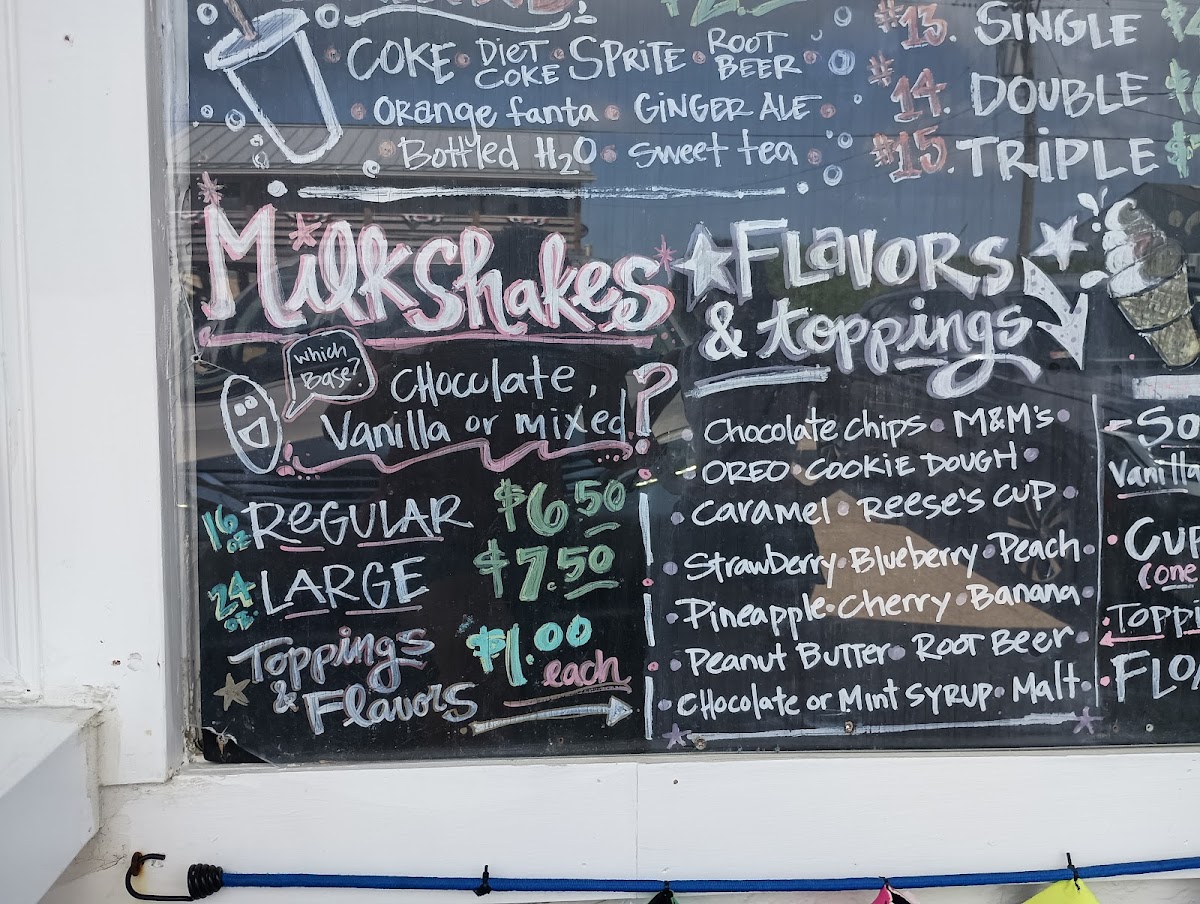 COKE • DIET COKE • SPRITE • ROOT BEER
Orange fanta • GINGER ALE •
• Bottled H2O • sweet tea •
#13. SINGLE
#14. DOUBLE
#15. TRIPLE $
Milkshakes
which Base?
CHocolate, Vanilla or mixed?
16 oz REGULAR $6.50
24 oz. LARGE $7.50
Toppings & Flavors $1.00 each
FLavors & toppings
• Chocolate chips • M&M's •
• OREO • COOKIE DOUGH •
• Caramel • Reese's CUP •
• Strawberry • Blueberry • Peach •
• Pineapple • Cherry • Banana •
• Peanut BUTTER • ROOT BEER •
• CHocolate or Mint SYRUP • Malt •
Vanilla
(one